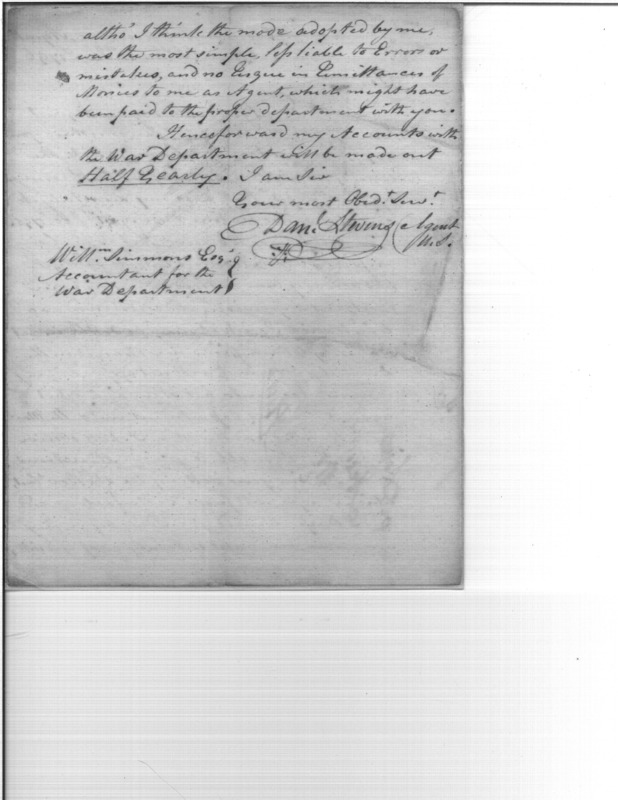 altho' I think the mode adopted by me,
was the most simple, less liable to Errors or
mistakes, and no in Remittances of
Monies to me as Agent, which might have
been paid to the proper department with you.
Henceforward my Accounts with
the War Department will be made out
Half Yearly. I am Sir
Your most Obedt. Servt.
Danl. Stevens Agent
Willm. Simmons Esqr.
Accountant for the
War Department